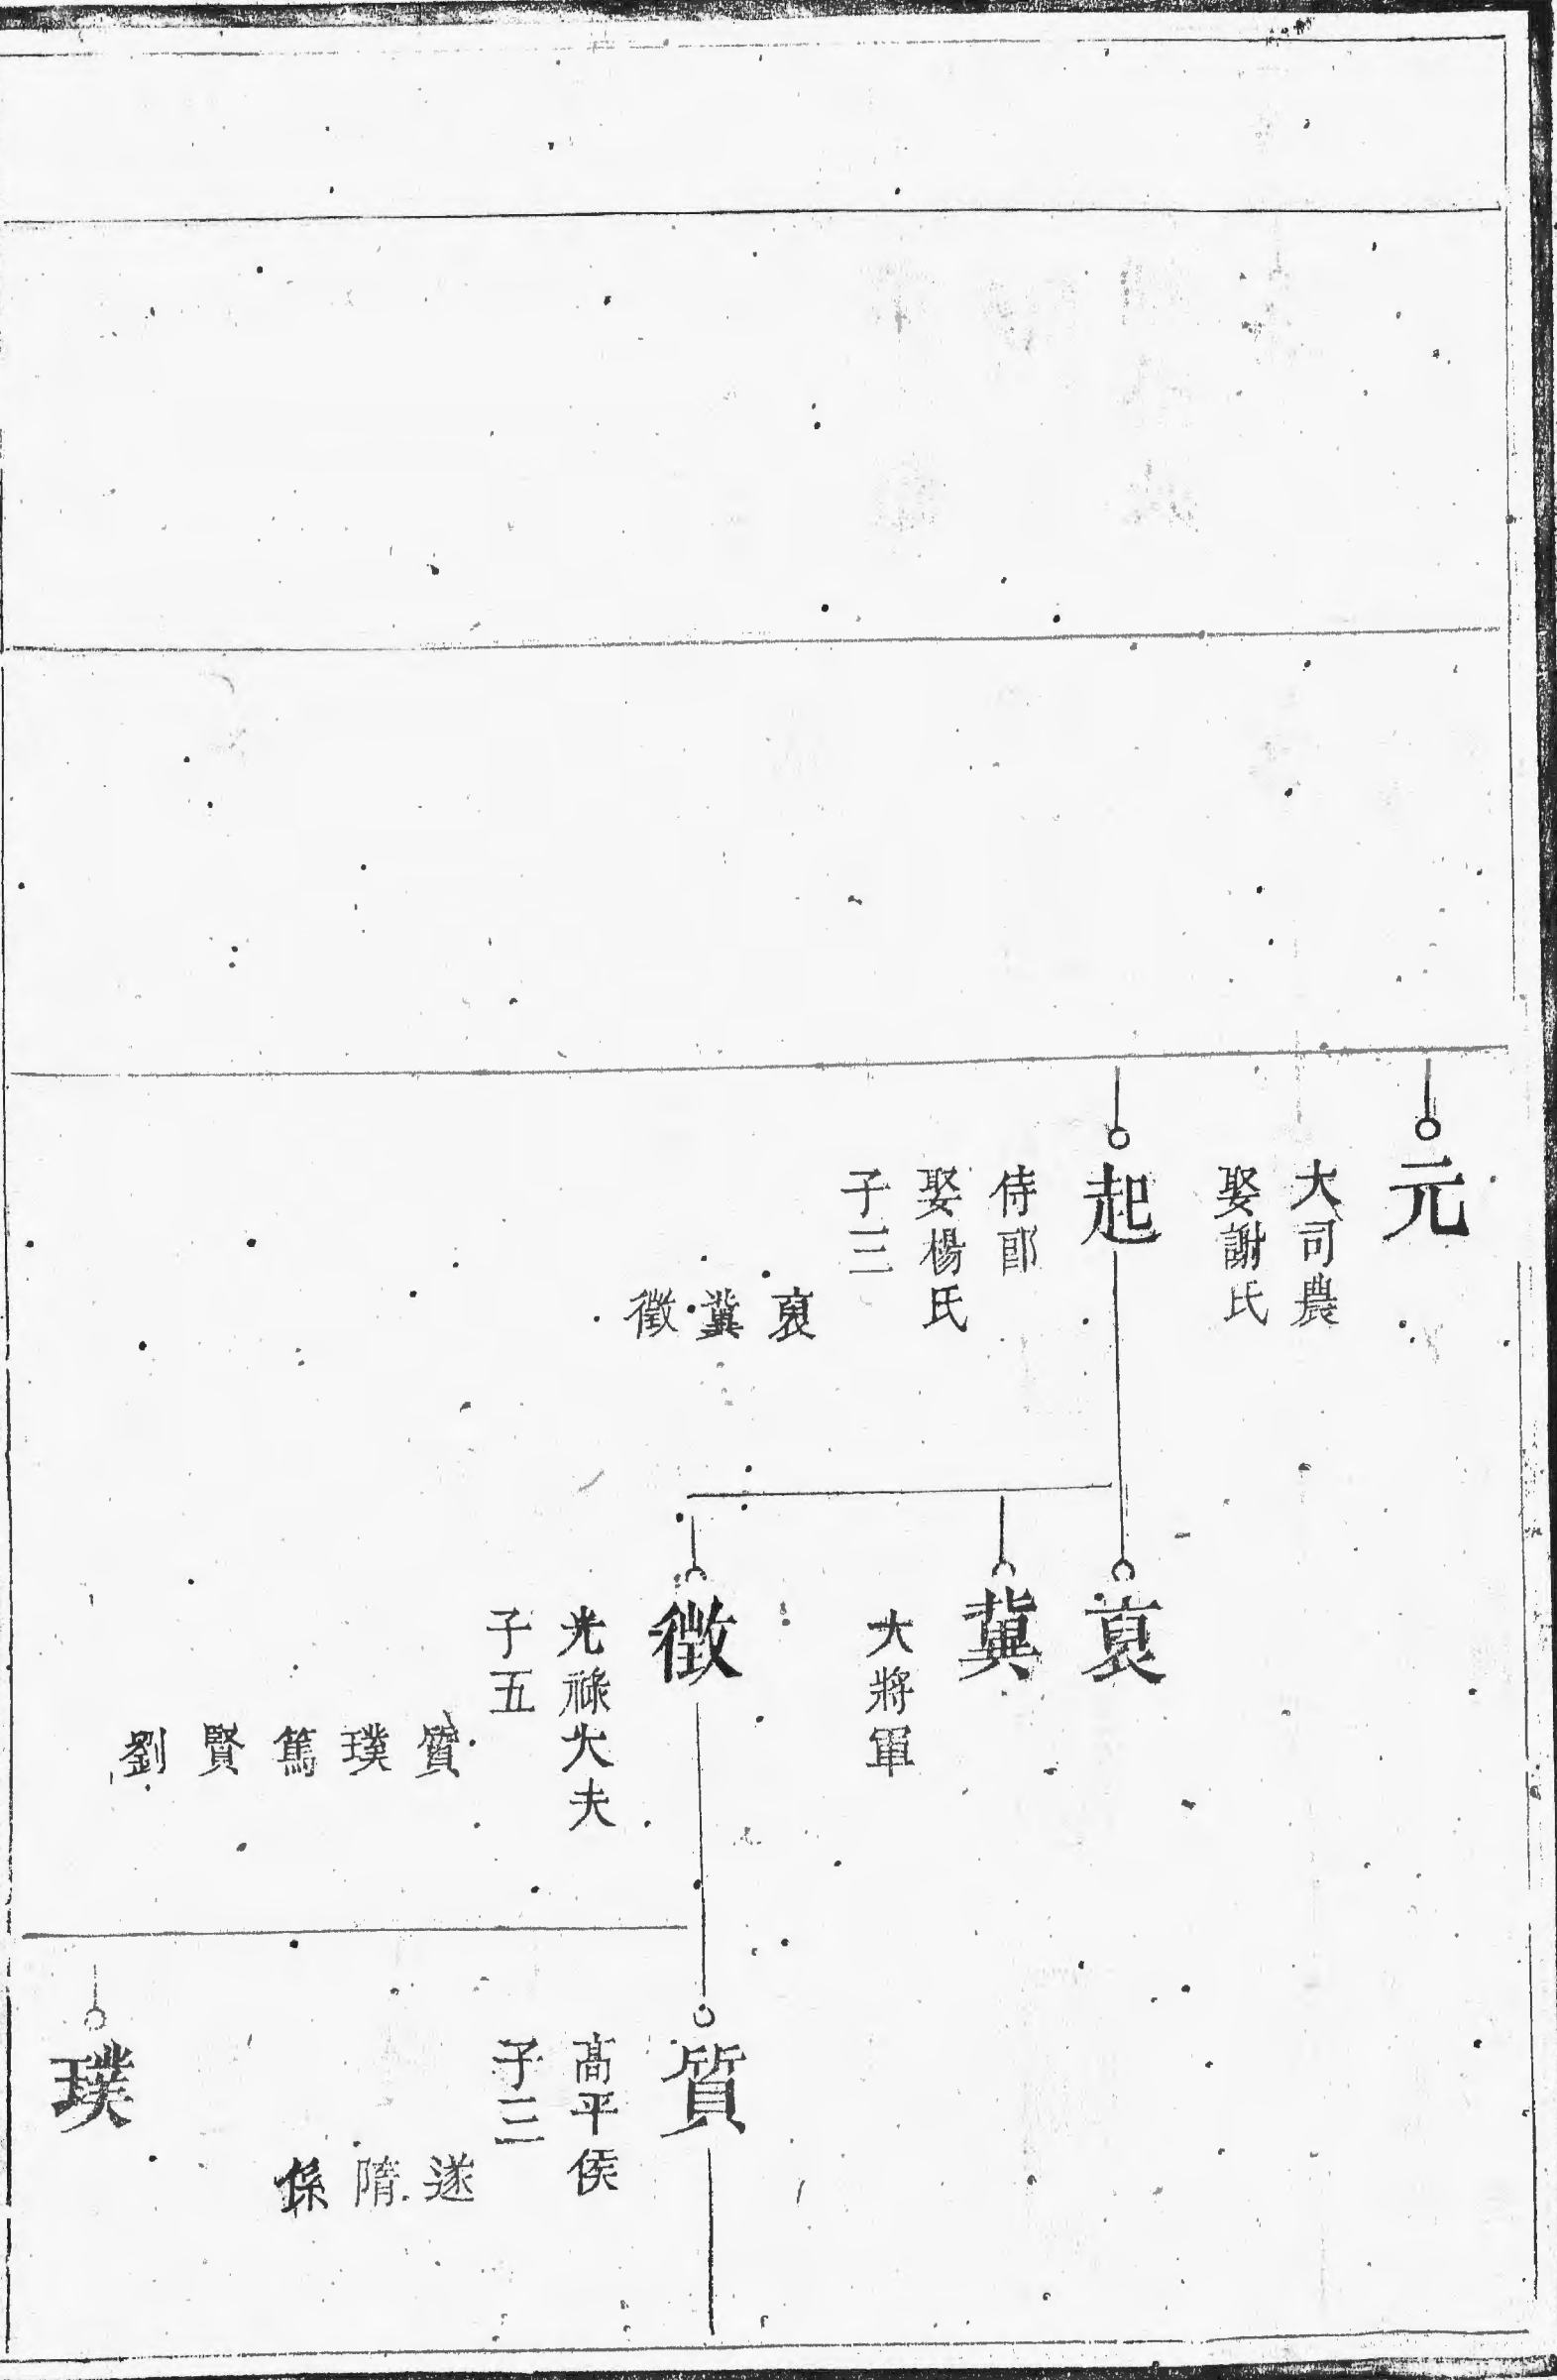 元
大司農
娶謝氏
起
侍郎
娶楊氏
子三
裒
冀
徵
裒
冀
大將軍
徵
光祿大夫
子五
質
璞
篤
賢
劉
質
高平侯
子三
遂
隋
係
璞